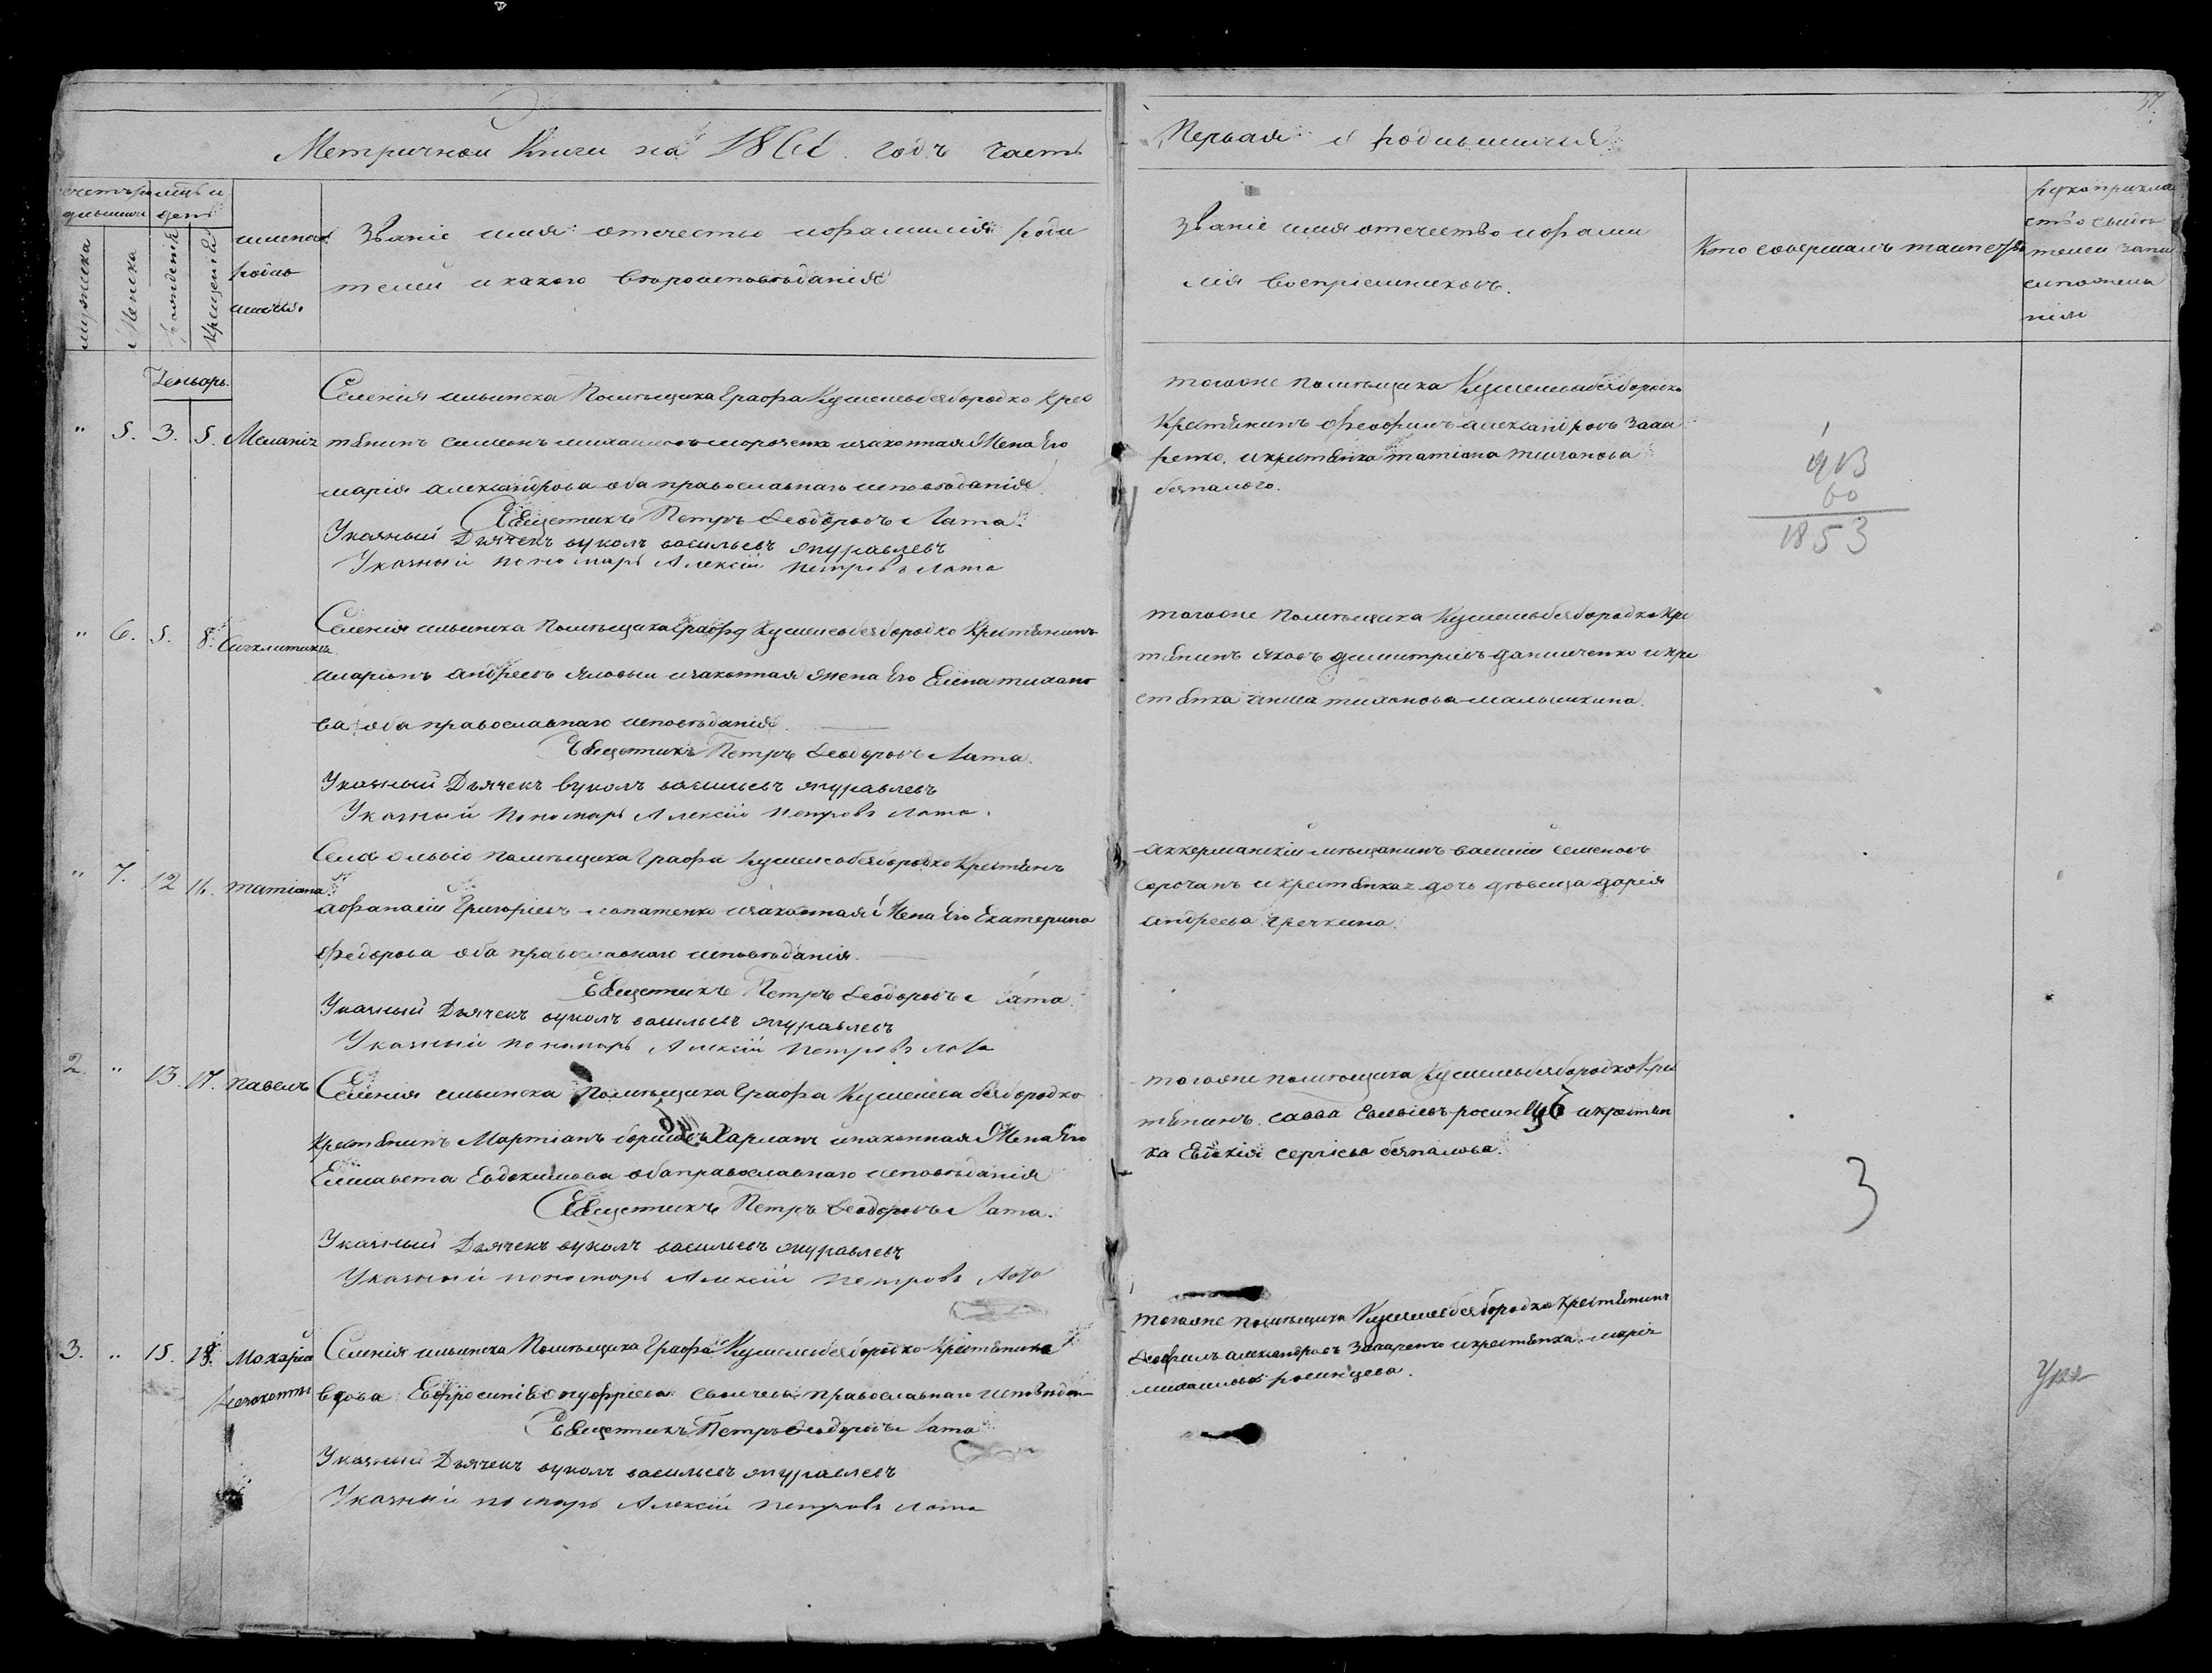 Метричной Книги на 1861 годъ часть
Первая о родившихся
57
счетъ ро мѣсяцъ и
дившихся день
мужеска
Женска
Рожденія
Крещенія
имена
родив
шихся.
Званіе имя отечество и фамилія роди
телей и какого вѣроисповѣданія
Званіе имя отечество и фами
лія воспріемниковъ.
Кто совершалъ таинство
рукоприкла
ство свидѣ
телей запи
Генварь.
" 5. 3. 5. Меланія
Селенія ильинска Помѣщика Графа Кушелева безбородко Крес
тянинъ симеонъ михаиловъ мороченко и законная Жена Его
марія александрова оба православнаго исповѣданія
Священникъ Петръ Феодоровъ Лата.
Указный Дьячекъ вуколъ васильевъ журавлевъ
Указный пономарь Алексій Петровъ Лата
тогоже помѣщика Кушелева безбородко
Крестянинъ феофилъ александровъ Заха
ренко, и крестянка татіана тиханова
безпалого.
913
60
1853
" 6. 5. 8. Сигклитикія
Селенія ильинска помѣщика Графа Кушелева безбородко Крестянинъ
иларіонъ андреевъ яловый и законная жена Его Елена тихано
ва оба православнаго исповѣданія
Священникъ Петръ Феодоровъ Лата.
Указный Дьячекъ вуколъ васильевъ журавлевъ
Указный пономарь Алексій Петровъ Лата.
тогоже помѣщика Кушелева безбородко Кре
тянинъ яковъ димитріевъ даниченко и кре
стянка тихонова малышкина.
" 7. 12 16. татіана
Села ольвіо помѣщика Графа Кушелева безбородко Крестянъ
афанасій Григоріевъ лопатенко и законная Жена Его Екатерина
Федорова оба православнаго исповѣданія.
Священникъ Петръ Феодоровъ Лата.
Указный Дьячекъ вуколъ васильевъ журавлевъ
Указный пономарь Алексій Петровъ Лата
аккерманскій мѣщанинъ василій семеновъ
сорочанъ и крестянка дочь дѣвица дарія
андреева гречкина.
2. " 13. 17. павелъ
Селенія ильинска Помѣщика Графа Кушелева безбородко
Крестянинъ Мартіанъ Харланъ и законная Жена Его
Елисавета Евдокимова оба православнаго исповѣданія
Священникъ Петръ Феодоровъ Лата.
Указный Дьячекъ вуколъ васильевъ журавлевъ
Указный пономарь Алексій Петровъ Лата
тогоже помѣщика Кушелева безбородко Кре
тянинъ савва и крестян
ка Евдокія сергіева безпалова.
3
3. " 15. 18. Макарій
незаконный
Селенія ильинска Помѣщика Графа Кушелева безбородко Крестянина
вдова Ефросинія онуфріева православнаго исповѣдан
Священникъ Петръ Феодоровъ Лата
Указный Дьячекъ вуколъ васильевъ журавлевъ
Указный помарь Алексій Петровъ Лата
тогоже помѣщика Кушелева безбородко Крестянинъ
Феофилъ александровъ Захаренко и крестянка марія
михаилова росинцева.